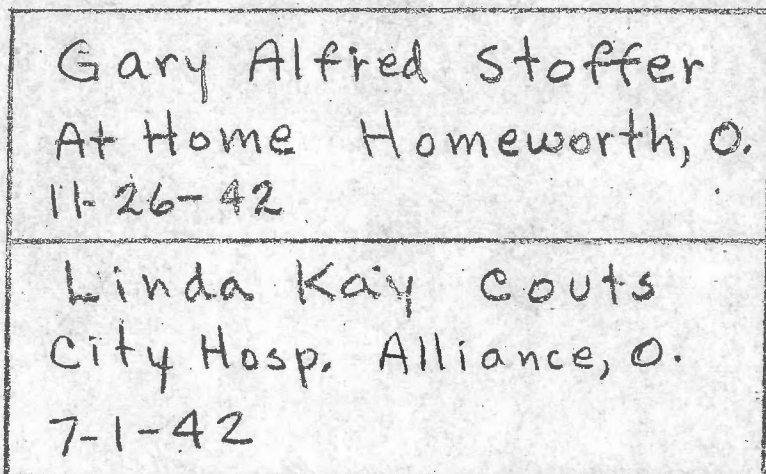 Gary Alfred Stoffer
At Home Homeworth, O.
11-26-42
Linda Kay Couts
City Hosp. Alliance, O.
7-1-42